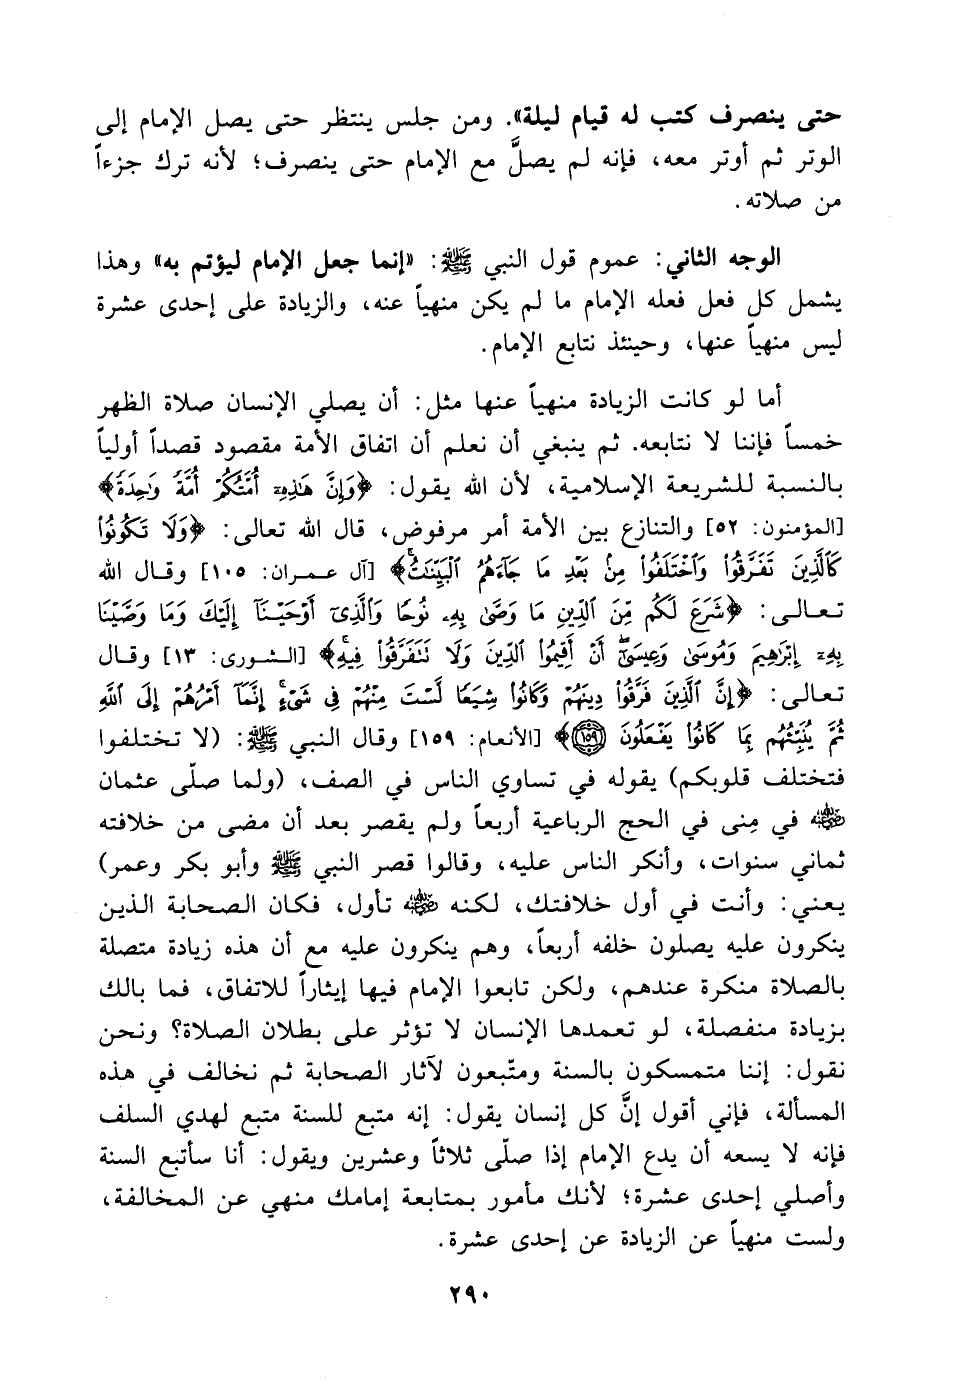 حتى ينصرف كتب له قيام ليلة». ومن جلس ينتظر حتى يصل الإمام إلى
الوتر ثم أوتر معه، فإنه لم يصلَّ مع الإمام حتى ينصرف؛ لأنه ترك جزءاً
من صلاته.
الوجه الثاني: عموم قول النبي ﷺ: «إنما جعل الإمام ليؤتم به» وهذا
يشمل كل فعل فعله الإمام ما لم يكن منهياً عنه، والزيادة على إحدى عشرة
ليس منهياً عنها، وحينئذ نتابع الإمام.
أما لو كانت الزيادة منهياً عنها مثل: أن يصلي الإنسان صلاة الظهر
خمساً فإننا لا نتابعه. ثم ينبغي أن نعلم أن اتفاق الأمة مقصود قصداً أولياً
بالنسبة للشريعة الإسلامية، لأن الله يقول: ﴿وَإِنَّ هَٰذِهِۦٓ أُمَّتُكُمْ أُمَّةً وَٰحِدَةً﴾
[المؤمنون: ٥٢] والتنازع بين الأمة أمر مرفوض، قال الله تعالى: ﴿وَلَا تَكُونُوا۟
كَٱلَّذِينَ تَفَرَّقُوا۟ وَٱخْتَلَفُوا۟ مِنۢ بَعْدِ مَا جَآءَهُمُ ٱلْبَيِّنَٰتُ﴾ [آل عمران: ١٠٥] وقال الله
تعالى: ﴿شَرَعَ لَكُم مِّنَ ٱلدِّينِ مَا وَصَّىٰ بِهِۦ نُوحًا وَٱلَّذِىٓ أَوْحَيْنَآ إِلَيْكَ وَمَا وَصَّيْنَا
بِهِۦٓ إِبْرَٰهِيمَ وَمُوسَىٰ وَعِيسَىٰٓ أَنْ أَقِيمُوا۟ ٱلدِّينَ وَلَا تَتَفَرَّقُوا۟ فِيهِ﴾ [الشورى: ١٣] وقال
تعالى: ﴿إِنَّ ٱلَّذِينَ فَرَّقُوا۟ دِينَهُمْ وَكَانُوا۟ شِيَعًا لَّسْتَ مِنْهُمْ فِى شَىْءٍ إِنَّمَآ أَمْرُهُمْ إِلَى ٱللَّهِ
ثُمَّ يُنَبِّئُهُم بِمَا كَانُوا۟ يَفْعَلُونَ ١٥٩﴾ [الأنعام: ١٥٩] وقال النبي ﷺ: (لا تختلفوا
فتختلف قلوبكم) يقوله في تساوي الناس في الصف، (ولما صلّى عثمان
رضي الله عنه في مِنى في الحج الرباعية أربعاً ولم يقصر بعد أن مضى من خلافته
ثماني سنوات، وأنكر الناس عليه، وقالوا قصر النبي ﷺ وأبو بكر وعمر)
يعني: وأنت في أول خلافتك، لكنه رضي الله عنه تأول، فكان الصحابة الذين
ينكرون عليه يصلون خلفه أربعاً، وهم ينكرون عليه مع أن هذه زيادة متصلة
بالصلاة منكرة عندهم، ولكن تابعوا الإمام فيها إيثاراً للاتفاق، فما بالك
بزيادة منفصلة، لو تعمدها الإنسان لا تؤثر على بطلان الصلاة؟ ونحن
نقول: إننا متمسكون بالسنة ومتّبعون لآثار الصحابة ثم نخالف في هذه
المسألة، فإني أقول إنَّ كل إنسان يقول: إنه متبع للسنة متبع لهدي السلف
فإنه لا يسعه أن يدع الإمام إذا صلّى ثلاثاً وعشرين ويقول: أنا سأتبع السنة
وأصلي إحدى عشرة؛ لأنك مأمور بمتابعة إمامك منهي عن المخالفة،
ولست منهياً عن الزيادة عن إحدى عشرة.
٢٩٠